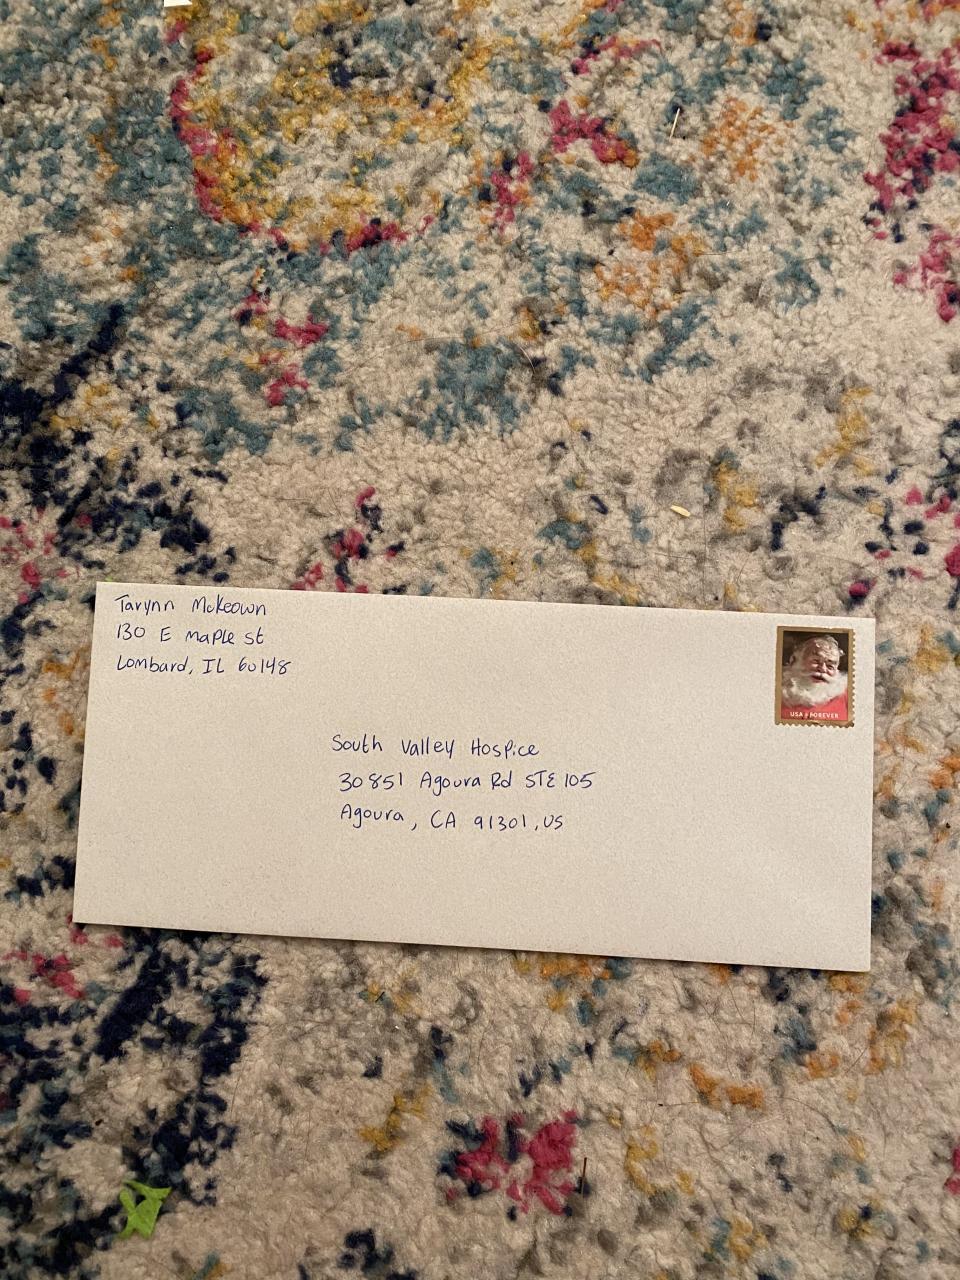 Tarynn McKeown
130 E maple st
Lombard, IL 60148
USA FOREVER
South Valley Hospice
30851 Agoura Rd STE 105
Agoura, CA 91301, US